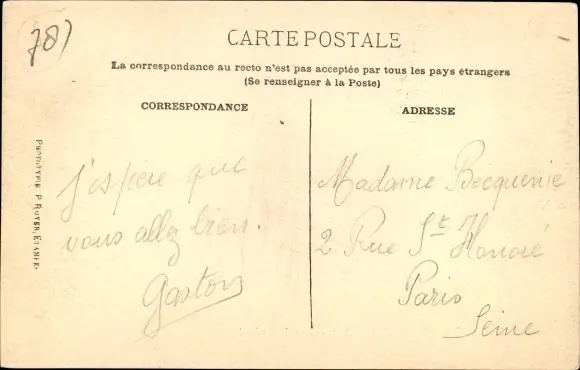 78)
CARTE POSTALE
La correspondance au recto n'est pas acceptée par tous les pays étrangers
(Se renseigner à la Poste)
CORRESPONDANCE
ADRESSE
PHOTOTYPIE P. ROYER, ETAMPES
J'espère que
vous allez bien.
Gaston
Madame Becquerie
2 Rue St Honoré
Paris
Seine